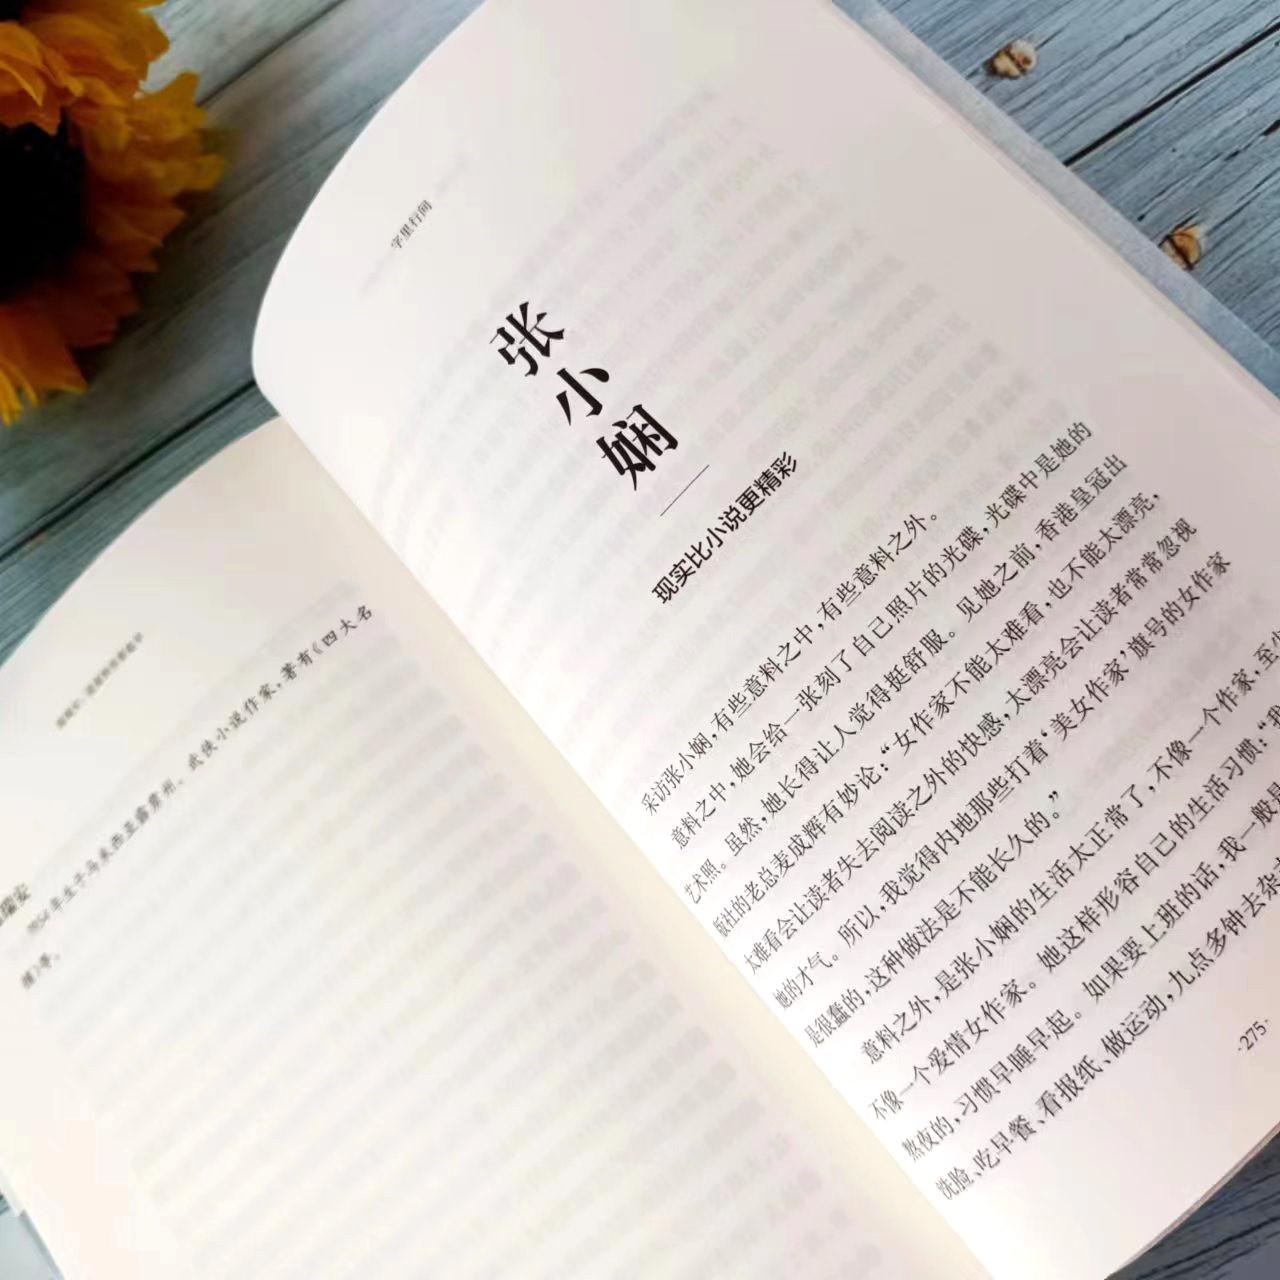 1954年生于马来西亚霹雳州。武侠小说作家,著有《四大名
捕》等。
字里行间
张小娴
现实比小说更精彩
采访张小娴,有些意料之中,有些意料之外。
意料之中,她会给一张刻了自己照片的光碟,光碟中是她的
艺术照。虽然,她长得让人觉得挺舒服。见她之前,香港皇冠出
版社的老总麦成辉有妙论:“女作家不能太难看,也不能太漂亮,
太难看会让读者失去阅读之外的快感,太漂亮会让读者常常忽视
她的才气。所以,我觉得内地那些打着‘美女作家’旗号的女作家
是很蠢的,这种做法是不能长久的。”
意料之外,是张小娴的生活太正常了,不像一个作家,至少
不像一个爱情女作家。她这样形容自己的生活习惯:“我
熬夜的,习惯早睡早起。如果要上班的话,我一般是
洗脸、吃早餐、看报纸、做运动,九点多钟去杂
·275·